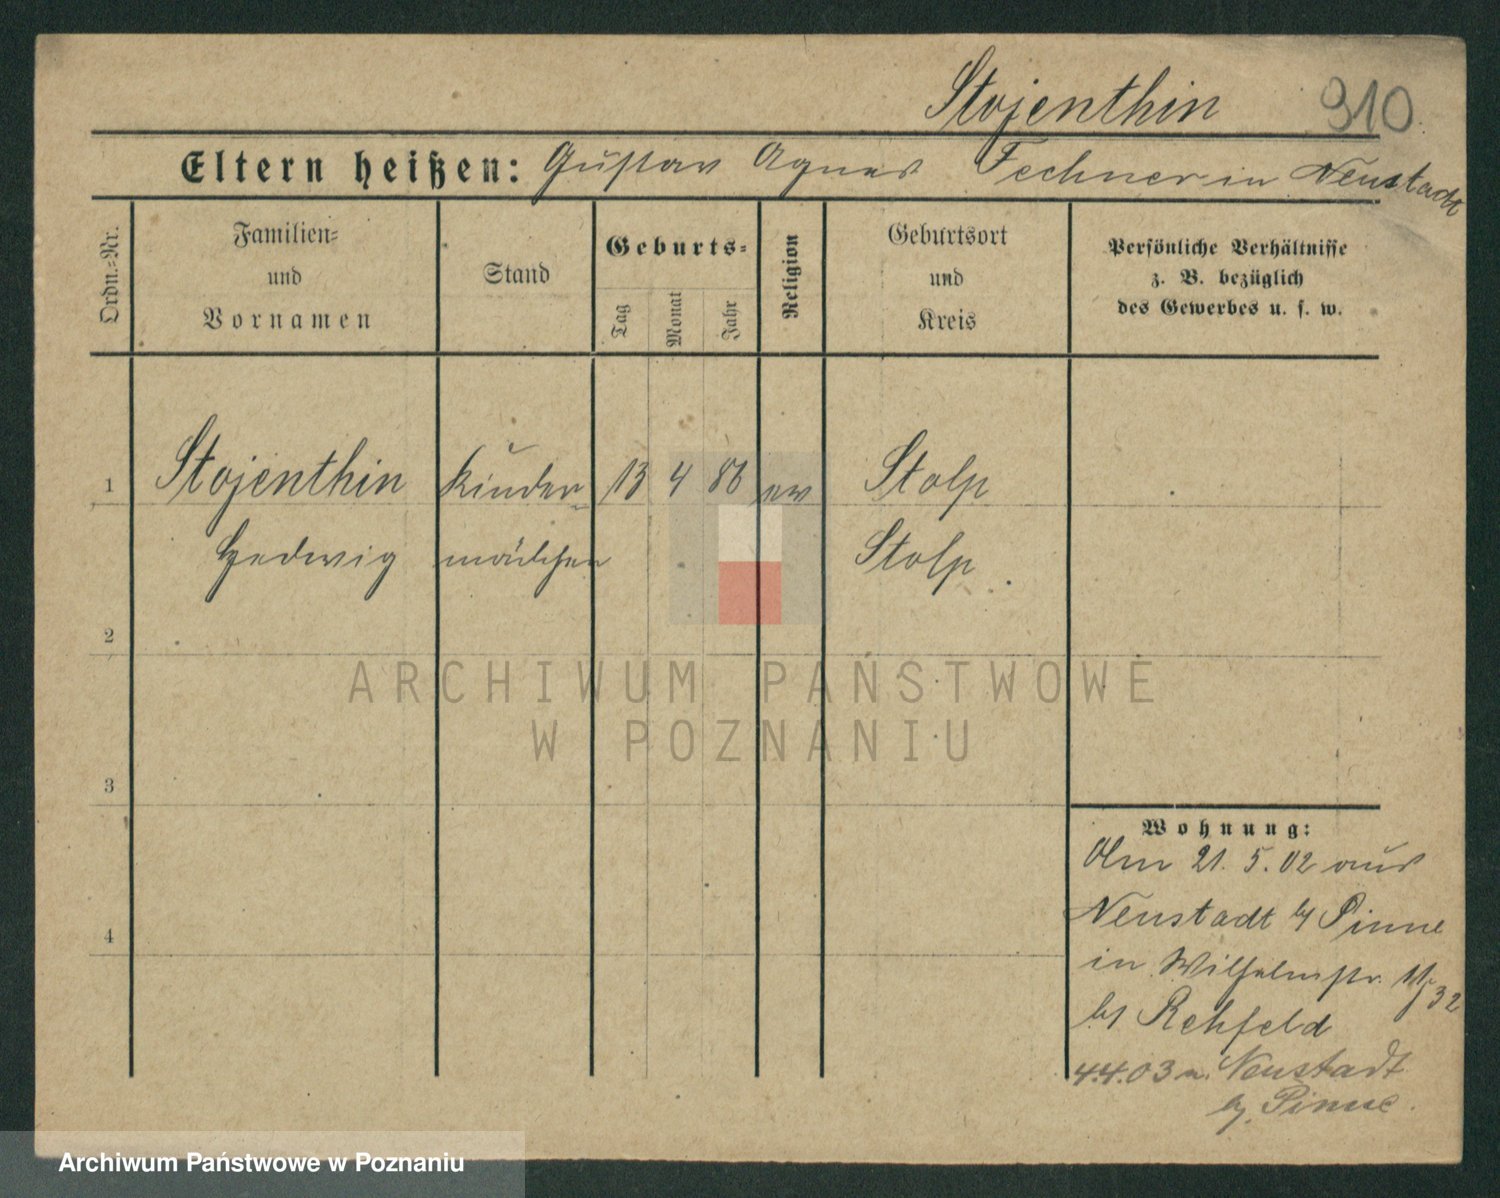 Stojenthin 910
Eltern heißen: Gustav Agnes Fechner in Neustadt
Ordn.-Nr.
Familien-
und
Vornamen
Stand
Geburts-
Tag
Monat
Jahr
Religion
Geburtsort
und
Kreis
Persönliche Verhältnisse
z. B. bezüglich
des Gewerbes u. s. w.
1 Stojenthin Kinder 13 4 86 ev Stolp
Hedwig mädchen Stolp.
2
3
4
ARCHIWUM PAŃSTWOWE
W POZNANIU
Wohnung:
Am 21. 5. 02 aus
Neustadt b/ Pinne
in Wilhelmstr. 11/32
b/ Rehfeld
4.4.03 n. Neustadt
b/ Pinne.
Archiwum Państwowe w Poznaniu